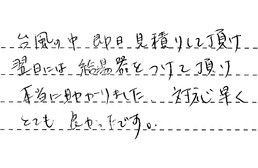 台風の中 即日見積りして頂け
翌日には 給湯器をつけて頂け
本当に助かりました、 対応早く
とても 良かったです。